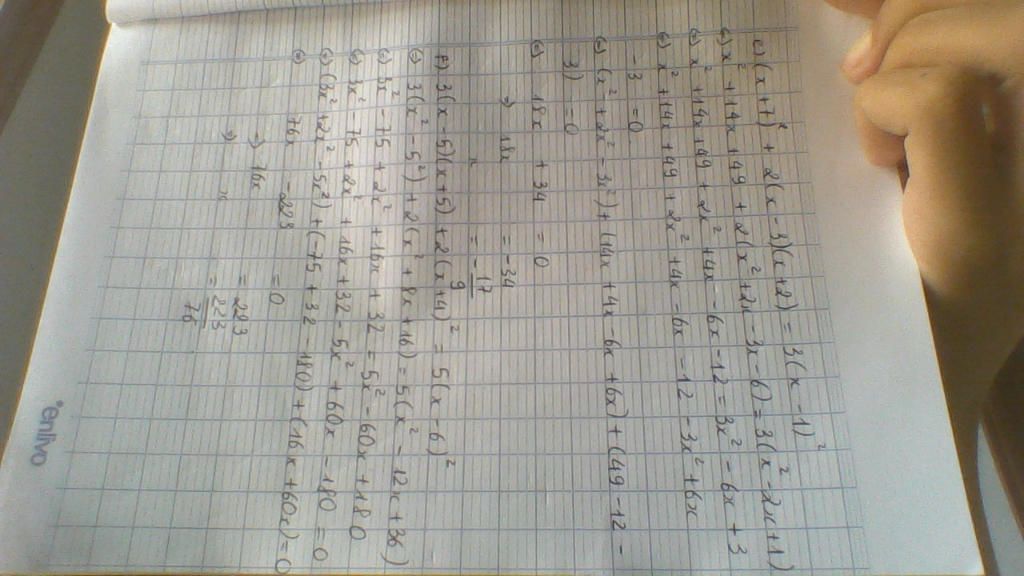 e) (x+7)² + 2(x-3)(x+2) = 3(x-1)²
(=) x² + 14x + 49 + 2(x² + 2x - 3x - 6) = 3(x² - 2x + 1)
(=) x² + 14x + 49 + 2x² + 4x - 6x - 12 = 3x² - 6x + 3
(=) x² + 14x + 49 + 2x² + 4x - 6x - 12 - 3x² + 6x
- 3 = 0
(=) (x² + 2x² - 3x²) + (14x + 4x - 6x + 6x) + (49 - 12 -
3) = 0
(=) 18x + 34 = 0
=> 18x = -34
x = -17/9
f) 3(x-5)(x+5) + 2(x+4)² = 5(x-6)²
(=) 3(x² - 5²) + 2(x² + 8x + 16) = 5(x² - 12x + 36)
(=) 3x² - 75 + 2x² + 16x + 32 = 5x² - 60x + 180
(=) 3x² - 75 + 2x² + 16x + 32 - 5x² + 60x - 180 = 0
(=) (3x² + 2x² - 5x²) + (-75 + 32 - 180) + (16x + 60x) = 0
(=) 76x - 223 = 0
=> 76x = 223
=> x = 223/76
enlivo